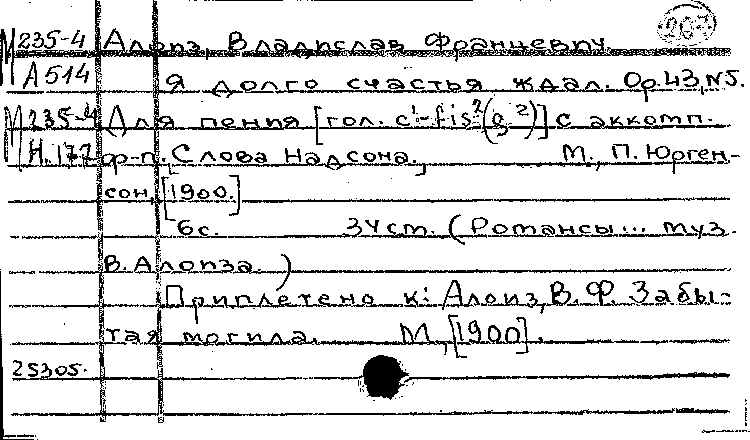 М235-4 Алоиз, Владислав Францевич.
А514 Я долго счастья ждал. Ор.43, N5.
М235-4 Для пения [гол. c¹-fis²(g²)] с аккомп.
Н.177 ф-п. [Слова Надсона.] М., П. Юрген-
сон, [1900.]
6с. 34 ст. (Романсы... муз.
В. Алоиза.)
Приплетено к: Алоиз, В. Ф. Забы-
тая могила. М., [1900].
25305.